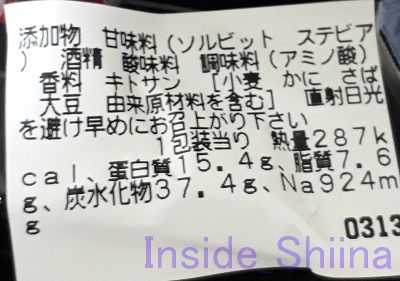 添加物 甘味料(ソルビット ステビア
) 酒精 酸味料 調味料(アミノ酸)
香料 キトサン [小麦 かに さば
大豆 由来原材料を含む] 直射日光
を避け早めにお召上がり下さい
1包装当り 熱量287k
cal、蛋白質15.4g、脂質7.6
g、炭水化物37.4g、Na924m
g
0313
Inside Shiina